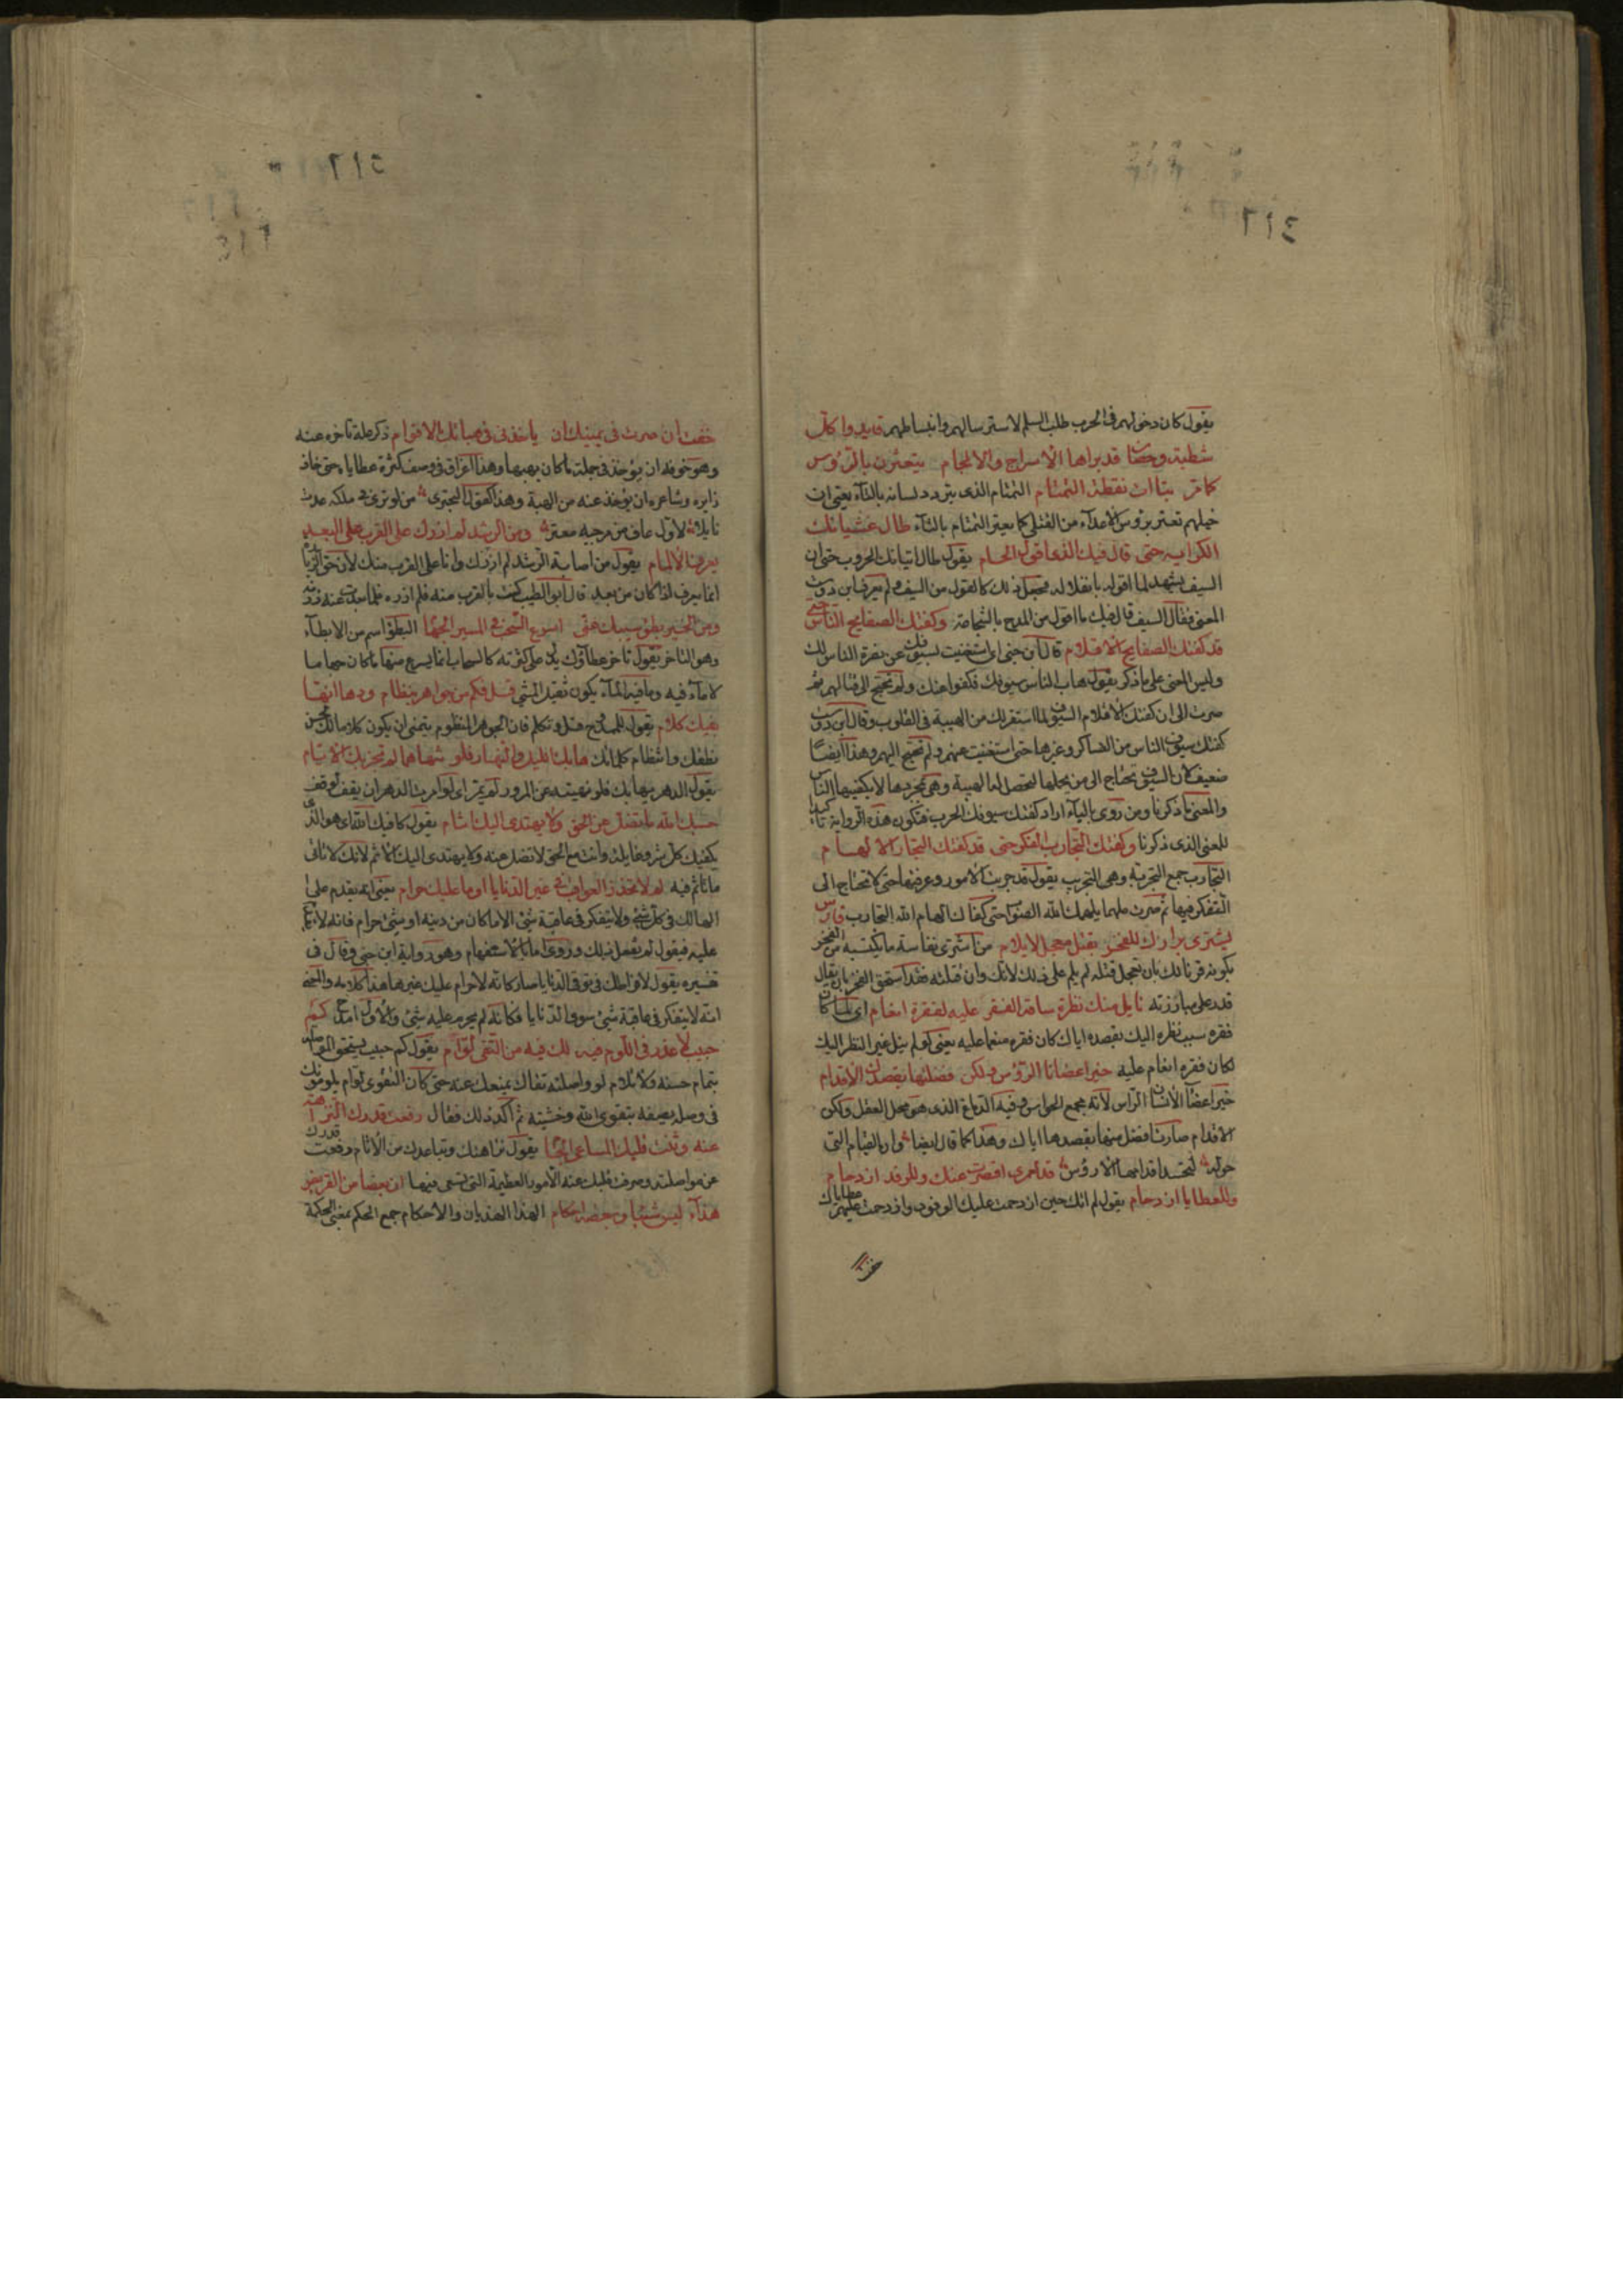 ٤١٦
يقول كان دخولهم فى الحرب طلب السلم لاسترسالهم وانبساطهم قايدوا كل
شطبة وحصان قد براها الاسراج والالجام يتعثرن بالرؤس
كما مر بتاات نطقه التمتام التمتام الذى يتردد لسانه بالتآء يعنى ان
خيلهم تعثر برؤس الاعدآء من القتلى كما يعثر التمتام بالتآء طال غشيانك
الكرايه حتى قال فيك الذى اقول الحسام يقول طال اتيانك الحروب حتى ان
السيف يشهد لما اقوله
المعنى فقال السيف قال فيك ما اقول من المدح بالشجاعة وكفتك الصفايح الناس حتى
قد كفتك الصفايح الاقلام قال ابن جنى اى استغنيت بسيوفك عن نصرة الناس لك
وليس المعنى على ما ذكر يقول هاب الناس سيوفك فكفوا عنك ولم تحتج الى قتالهم ثم
صرت الى ان كفتك الاقلام السيوف لما استقر لك من الهيبة فى القلوب وقال ابن دوست
كفتك سيوف الناس من العساكر وغيرها حتى استغنيت عنهم ولم تحتج اليهم وهذا ايضا
ضعيف لان السيوف تحتاج الى من يحملها لتحصل لها الهيبة وهى بمجردها لا يكفيها الناس
والمعنى ما ذكرنا ومن روى بالبآء اراد كفتك سيوفك الحرب فتكون هذه الرواية تاكيدا
للمعنى الذى ذكرنا وكفتك التجارب الفكر حتى قد كفتك التجارب الالهام
التجارب جمع التجربة وهى التجريب يقول قد جربت الامور وعرفتها حتى لا تحتاج الى
التفكر فيها ثم صرت ملهما يلهمك الله الصواب حتى كفاك الهام الله التجارب فارس
يشترى برازك للفخر بقتل معجل لا يلام من اشترى نفاسة ما يكتسبه من الفخر
بكونه قرنا لك بان تعجل قتله لم يلم على ذلك لانك وان قتلته فقد استحق الفخر بان يقال
قدر على مبارزته نايل منك نظرة ساقه الفقر عليه لفقره انعام اى لما كان
فقره سبب نظره اليك بقصده اياك كان فقره منعما عليه يعنى لو لم ينل غير النظر اليك
لكان فقره انعام عليه خير اعضائنا الرؤس ولكن فضلتها بقصدك الاقدام
خير اعضآء الانسان الرأس لانه مجمع الحواس وفيه الدماغ الذى هو محل العقل ولكن
الاقدام صارت افضل منها بقصدها اياك وهذا كما قال ايضا وان القيام التى
حوله لتحسد اقدامها الارؤس قد لعمرى اقصرت عنك وللوفد ازدحام
وللعطايا ازدحام يقول لم اتك حين ازدحمت عليك الوفود وازدحمت عليهم عطاياك
خفت
٤١٥
خفت ان صرت فى يمينك ان ياخذنى فى هباتك الاقوام ذكر علة تاخره عنه
وهو خوفه ان يؤخذ فى جملة ما كان يهبها وهذا اغراق فى وصف كثرة عطاياه حتى خاف
زايره وشاعره ان يؤخذ عنه من الهبة وهذا كقول البحترى من لو ترى فى ملكه عدت
نايلا لاول عاف من مرجيه معتر ومن الرشد لم ازرك على القرب على البعد
يعرف الالمام يقول من اصابة الرشد لم ازرك وانا على القرب منك لان حق الزيارة
انما يعرف اذا كان من بعيد قال ابو الطيب كنت بالقرب منه فلم ازره فلما بعدت عنه زرته
ومن الخير بطؤ سيبك عنى اسرع السحب فى المسير الجهام البطؤ اسم من الابطآء
وهو التاخر يقول تاخر عطاؤك يدل على كثرته كالسحاب انما يسرع منها ما كان جهاما
لا مآء فيه وما فيه المآء يكون ثقيل المشى قل فكم من جواهر بنظام ودها انها
بفيك كلام يقول للممدوح قل وتكلم فان الجوهر المنظوم يتمنى ان يكون كلاما لك لحسن
نطقك وانتظام كلماتك هابك الليل والنهار فلو تنهاهما لم تجز بك الايام
يقول الدهر يهابك فلو نهيته عن المرور لم يمر اى لو امرت الدهر ان يقف لوقف
حسبك الله ما تضل عن الحق ولا يهتدى اليك اثام يقول كافيك الله اى هو الذى
يكفيك كل شر وغايلة وانت مع الحق لا تضل عنه ولا يهتدى اليك الاثم لانك لا تاتى
ما تاثم فيه لم لا تحذر العواقب فى غير الدنايا او ما عليك حرام يعنى انه يقدم على
المهالك فى كل شئ ولا يتفكر فى عاقبة شئ الا ما كان من دنية او شئ حرام فانه لا يقدم
عليه فيقول لم تفعل ذلك وروى اما بالاستفهام وهو رواية ابن جنى وقال فى
تفسيره يقول لافراطك فى توقى الدنايا صار كانه لا حرام عليك غيرها هذا كلامه والمعنى
انه لا يتفكر فى عاقبة شئ سوى الدنايا فكانه لم يحرم عليه شئ والاول امدح كم
حبيب لا عذر فى اللوم فيه لك فيه من التقى لوام يقول كم حبيب يستحق المواصلة
بتمام حسنه ولا تلام لو واصلته تقاك يمنعك عنه حتى كان التقوى لوام يلومونك
فى وصله يصفه بتقوى الله وخشيته ثم اكد ذلك فقال رفعت قدرك النزاهة
عنه وثنت قلبك المساعى الجسام يقول نزاهتك وتباعدك من الاثام رفعت قدرك
عن مواصلته وصرف قلبك عنه الامور العظيمة التى تسعى فيها ان بعضا من القريض
هذآء ليس شيئا وبعضه احكام الهذآ الهذيان والاحكام جمع الحكم بمعنى الحكمة